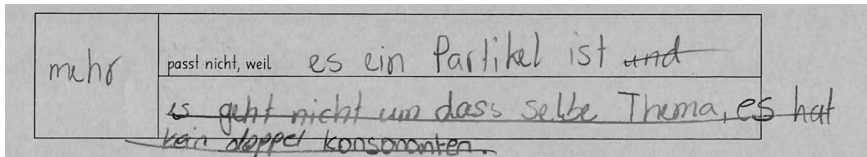 mehr
passt nicht, weil es ein Partikel ist und
es geht nicht um dass selbe Thema, es hat
kein doppel konsonanten.